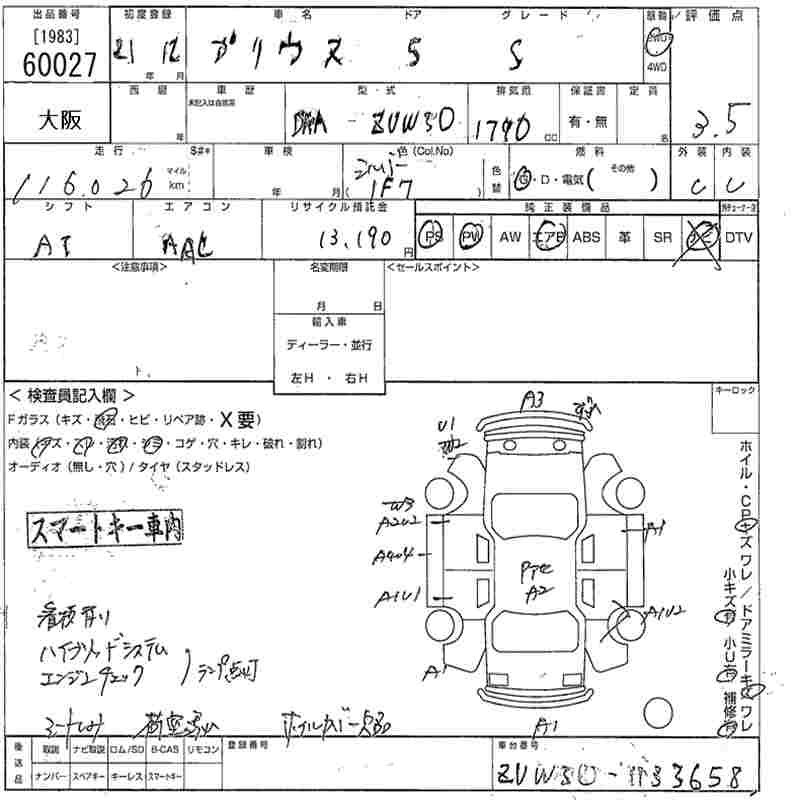 出品番号 初度登録 車名 ドア グレード 駆動 評価点
[1983]
60027
21 12 プリウス 5 S
年 月
2WD
4WD
3.5
西暦 車歴 型・式 排気量 保証書 定員
未記入は自家用
大阪
DAA - ZVW30
1790 cc
有・無
年 名
走行 S#* 車検 色(Col.No) 燃料 外装 内装
116.026
マイル
km
年 月
シルバー
( 1F7 )
色替
G・D・電気( その他 )
C C
シフト エアコン リサイクル預託金 純正装備品
AT AAC 13,190 円
PS PW AW エアB ABS 革 SR ナビ DTV
<注意事項> 名変期限 <セールスポイント>
月 日
輸入車
ディーラー・並行
左H・右H
<検査員記入欄>
キーロック
Fガラス(キズ・飛石・ヒビ・リペア跡・X要)
内装(キズ・コゲ・穴・キレ・破れ・割れ)
オーディオ(無し・穴)/タイヤ(スタッドレス)
A3
U1
W3
A2U2
A1
A1U1
Pテセ
A2
A1U2
A1
A1
ホイル・CPキズワレ/ドアミラーキズワレ
小キズ有 小U有 補修有
スマートキー車内
看板有り
ハイブリッドシステム
エンジンチェック
ランプ点灯
シートしみ 荷室 ホイルカバー欠品
後送品 取説 ナビ取説 ロム/SD B-CAS リモコン 登録番号 車台番号
ナンバー スペアキー キーレス スマートキー